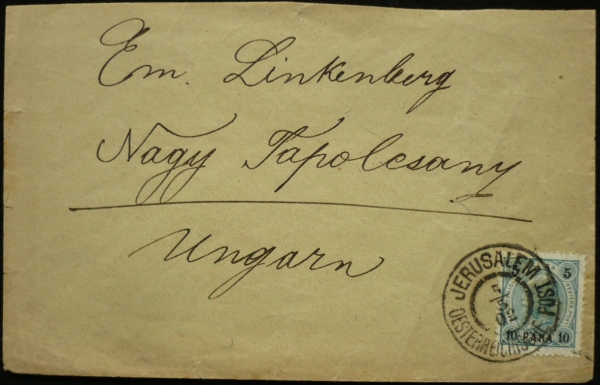 Em. Linkenberg
Nagy Tapolcsany
Ungarn
JERUSALEM
5
10 PARA 10